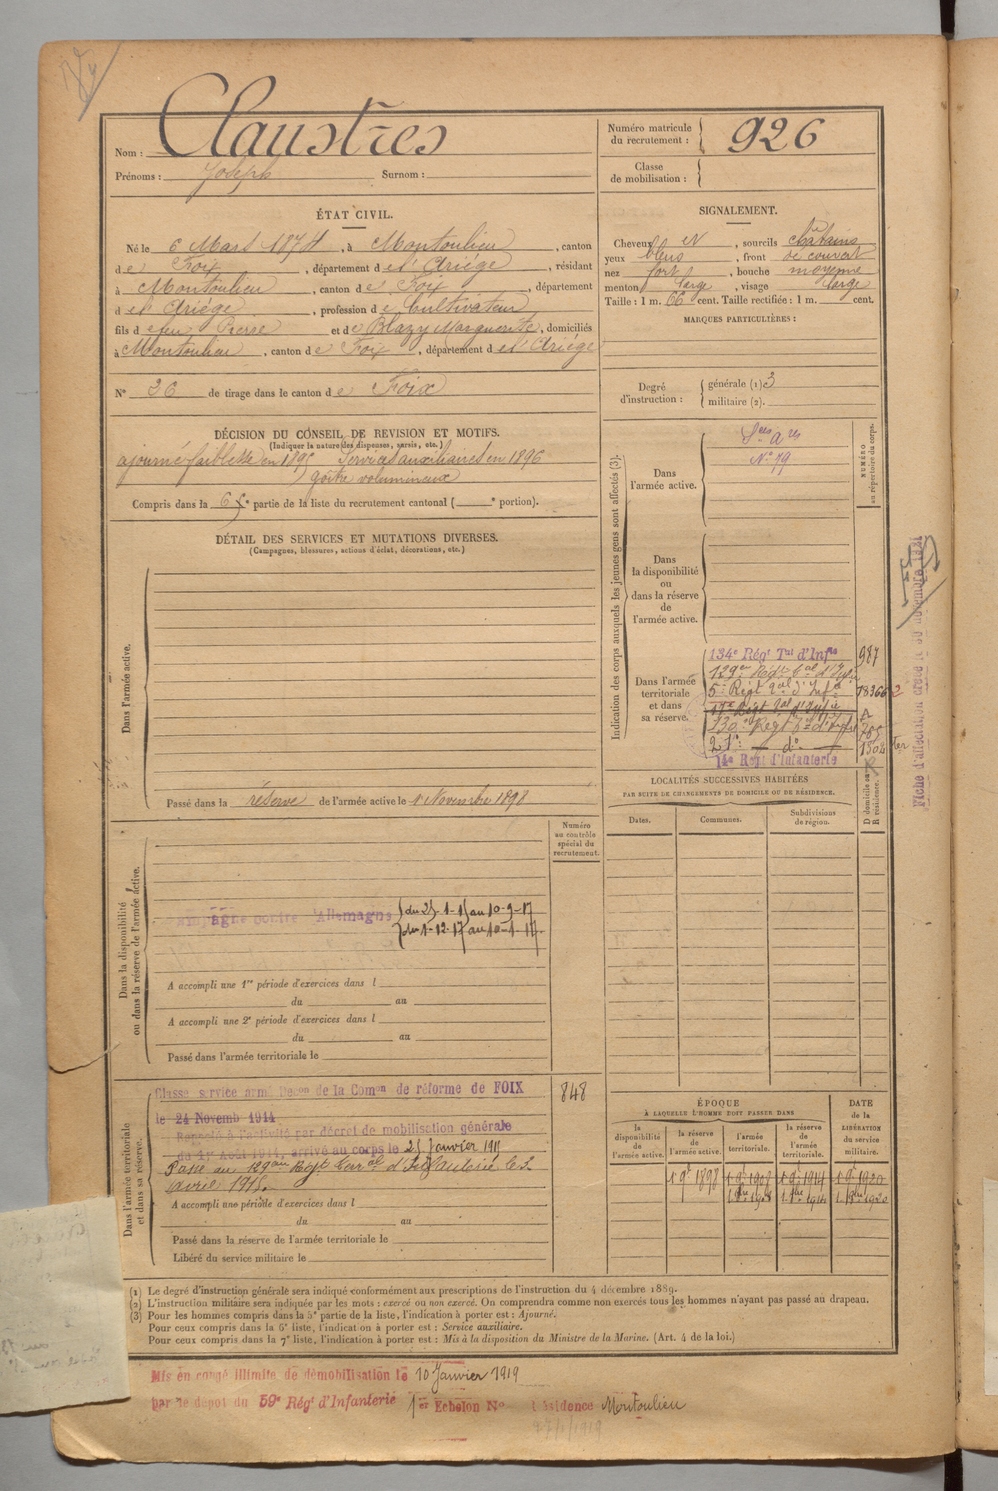 Nom : Claustres
Prénoms : Joseph Surnom :
Numéro matricule du recrutement : 926
Classe de mobilisation :
ÉTAT CIVIL.
Né le 6 Mars 1874, à Montoulieu, canton
de Foix, département de l'Ariége, résidant
à Montoulieu, canton de Foix, département
de l'Ariége, profession de Cultivateur
fils de feu Pierre et de Blazy Marguerite, domiciliés
à Montoulieu, canton de Foix, département de l'Ariége
N° 26 de tirage dans le canton de Foix
SIGNALEMENT.
Cheveux et, sourcils chatains
yeux bleus, front découvert
nez fort, bouche moyenne
menton large, visage large
Taille : 1 m. 66 cent. Taille rectifiée : 1 m. cent.
MARQUES PARTICULIÈRES :
Degré d'instruction : générale (1) 3
militaire (2).
DÉCISION DU CONSEIL DE REVISION ET MOTIFS.
(Indiquer la nature des dispenses, sursis, etc.)
ajourné faiblesse en 1895 Services auxiliaires en 1896
goître volumineux
Compris dans la 6e partie de la liste du recrutement cantonal ( e portion).
DÉTAIL DES SERVICES ET MUTATIONS DIVERSES.
(Campagnes, blessures, actions d'éclat, décorations, etc.)
Dans l'armée active.
Passé dans la réserve de l'armée active le 1 Novembre 1898
Indication des corps auxquels les jeunes gens sont affectés (3).
NUMÉRO au répertoire du corps.
Dans l'armée active.
N° 79
Dans la disponibilité ou dans la réserve de l'armée active.
Dans l'armée territoriale et dans sa réserve.
134e Régt Tal d'Infie 987
129e Régt Tal d'Infie
5e Régt Tal d'Infie 18366
130e Régt Tal d'Infie
21e do 1302 ter
14e Regt d'Infanterie
Fiche d'affectation
LOCALITÉS SUCCESSIVES HABITÉES
PAR SUITE DE CHANGEMENTS DE DOMICILE OU DE RÉSIDENCE.
Dates. Communes. Subdivisions de région.
D domicile ou R résidence.
Numéro au contrôle spécial du recrutement.
Dans la disponibilité ou dans la réserve de l'armée active.
Campagne contre l'Allemagne du 25-1-15 au 10-9-17
du 1-12-17 au 10-1-19
A accompli une 1re période d'exercices dans l
du au
A accompli une 2e période d'exercices dans l
du au
Passé dans l'armée territoriale le
Dans l'armée territoriale et dans sa réserve.
Classé service armé Décon de la Comon de réforme de FOIX 848
le 24 Novemb 1914
Rappelé à l'activité par décret de mobilisation générale
du 1er Août 1914, arrivé au corps le 25 Janvier 1915
Passé au 129e Régt Terral d'Infanterie le 2
avril 1915.
A accompli une période d'exercices dans l
du au
Passé dans la réserve de l'armée territoriale le
Libéré du service militaire le
ÉPOQUE
À LAQUELLE L'HOMME DOIT PASSER DANS
la disponibilité de l'armée active. la réserve de l'armée active. l'armée territoriale. la réserve de l'armée territoriale.
DATE de la LIBÉRATION du service militaire.
1 9e 1898 1 9e 1908 1 9e 1914 1 9e 1920
(1) Le degré d'instruction générale sera indiqué conformément aux prescriptions de l'instruction du 4 décembre 1889.
(2) L'instruction militaire sera indiquée par les mots : exercé ou non exercé. On comprendra comme non exercés tous les hommes n'ayant pas passé au drapeau.
(3) Pour les hommes compris dans la 5e partie de la liste, l'indication à porter est : Ajourné.
Pour ceux compris dans la 6e liste, l'indication à porter est : Service auxiliaire.
Pour ceux compris dans la 7e liste, l'indication à porter est : Mis à la disposition du Ministre de la Marine. (Art. 4 de la loi.)
Mis en congé illimité de démobilisation le 10 Janvier 1919
par le dépôt du 59e Régt d'Infanterie 1er Echelon N° Résidence Montoulieu